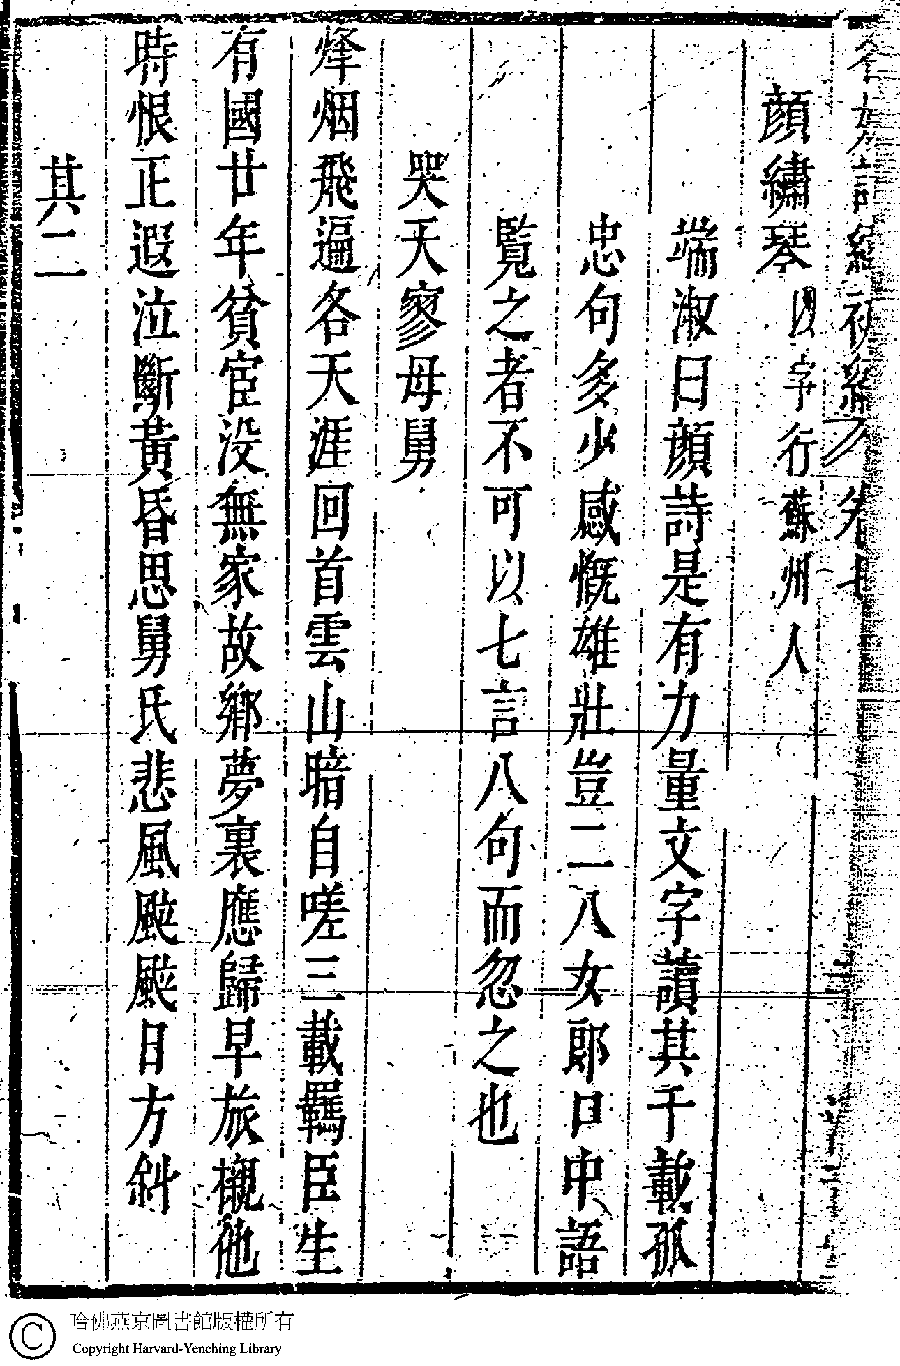 名媛詩緯初編 卷七
顔繡琴 字行蘇州人
端淑曰顔詩是有力量文字讀其千載孤
忠句多少感慨雄壯豈二八女郎口中語
覧之者不可以七言八句而忽之也
哭天寥母舅
烽烟飛遍各天涯回首雲山暗自嗟三載羈臣生
有國廿年貧宦没無家故鄉夢裏應歸早旅櫬他
時恨正遐泣斷黃昏思舅氏悲風颴颴日方斜
其二
哈佛燕京圖書館版權所有
Copyright Harvard-Yenching Library